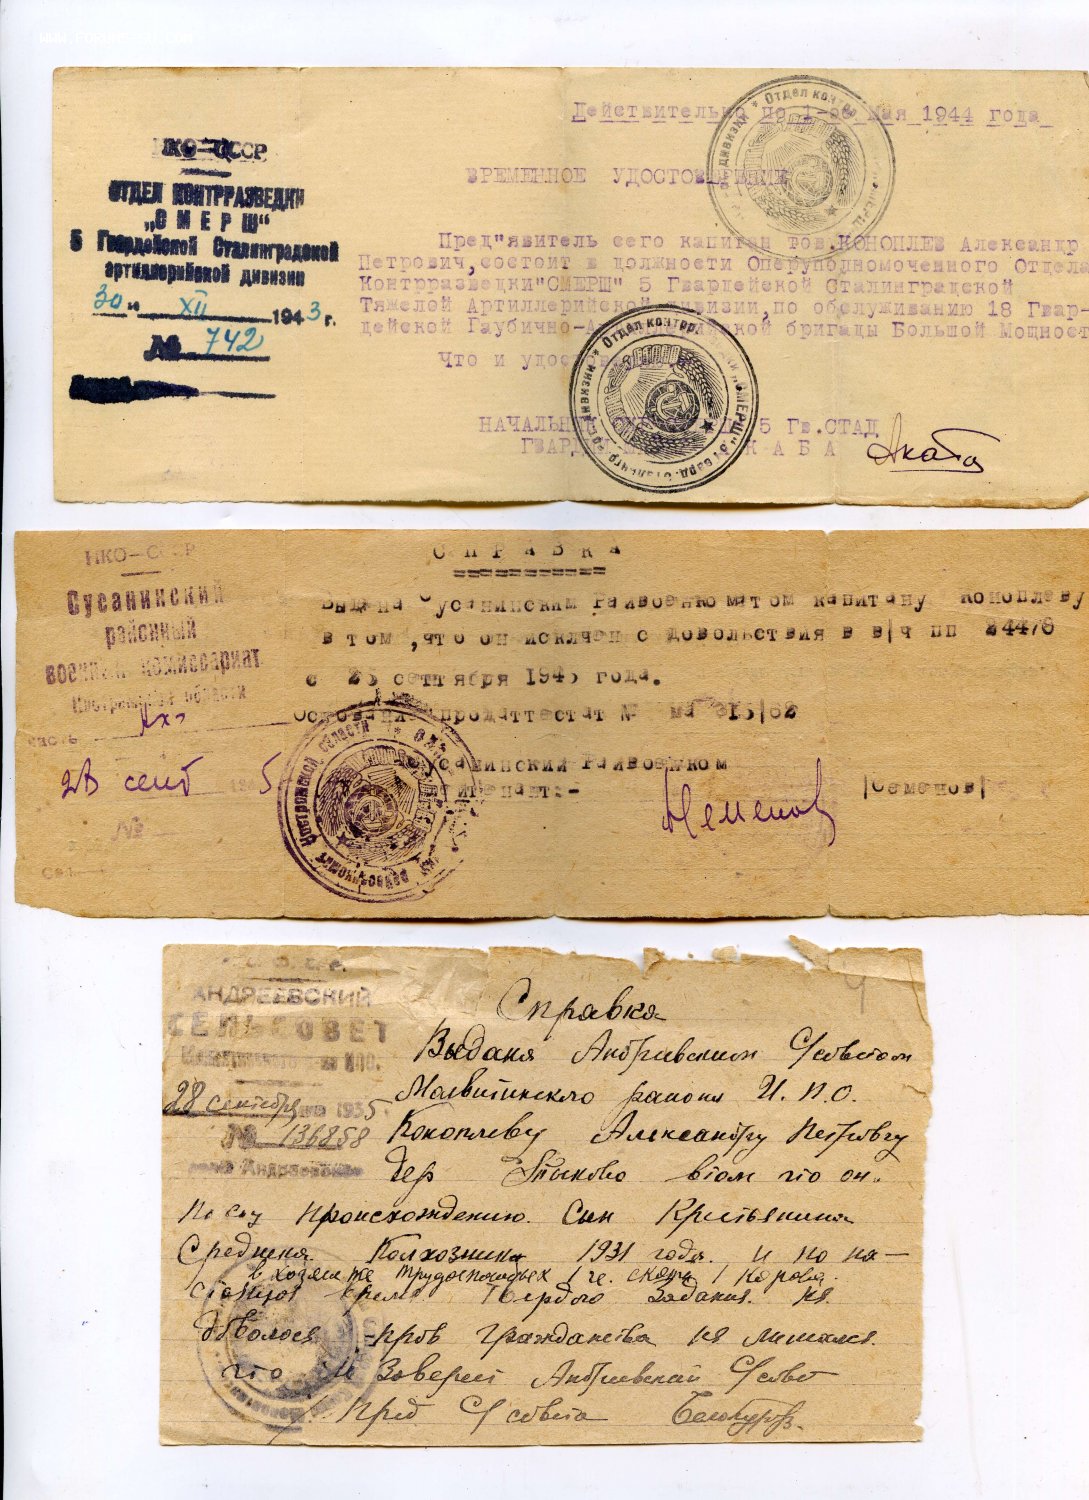 НКО-СССР
ОТДЕЛ КОНТРРАЗВЕДКИ
„СМЕРШ"
5 Гвардейской Сталинградской
артиллерийской дивизии
30 " XII 1943 г.
№ 742
Действительно по 1-ое мая 1944 года
ВРЕМЕННОЕ УДОСТОВЕРЕНИЕ
Пред"явитель сего капитан тов.КОНОПЛЕВ Александр
Петрович,состоит в должности Оперуполномоченного Отдела
Контрразведки"СМЕРШ" 5 Гвардейской Сталинградской
Тяжелой Артиллерийской дивизии,по обслуживанию 18 Гвар-
дейской Гаубично-А бригады Большой Мощност
Что и удостов
НАЧАЛЬНИК 5 Гв.СТАД
ГВАРД
Отдел контр
"СМЕРШ" 5 Гвард. Сталингр. дивизии
НКО-СССР
Сусанинский
районный
военный комиссариат
Костромской области
часть
28 сент 5
№
СПРАВКА
Выдана Сусанинским Райвоенкоматом капитану Коноплеву
в том ,что он исключен с довольствия в в/ч пп 24478
с 25 сентября 1945 года.
Основание продаттестат №
Сусанинский Райвоенком
/Семенов/
АНДРЕЕВСКИЙ
СЕЛЬСОВЕТ
28 сентября 1935
№ 136858
Справка
Выдана Андреевским С/советом
Молвитинского района И.П.О.
Коноплеву Александру Петровчу
дер в том что он
По соц происхождению. Сын Крестьянина
Середняка Колхозника 1931 года. и по на—
в хозяйстве трудоспособных 1 че. скота 1 корова.
стоящее время Твердого Задания. не
прав гражданства не лишался.
что и Заверяет Андреевский С/совет
Пред С/совета